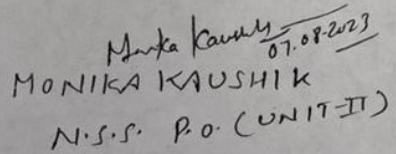 Monika Kaushik
07.08.2023
MONIKA KAUSHIK
N.S.S. P.O. (UNIT-II)